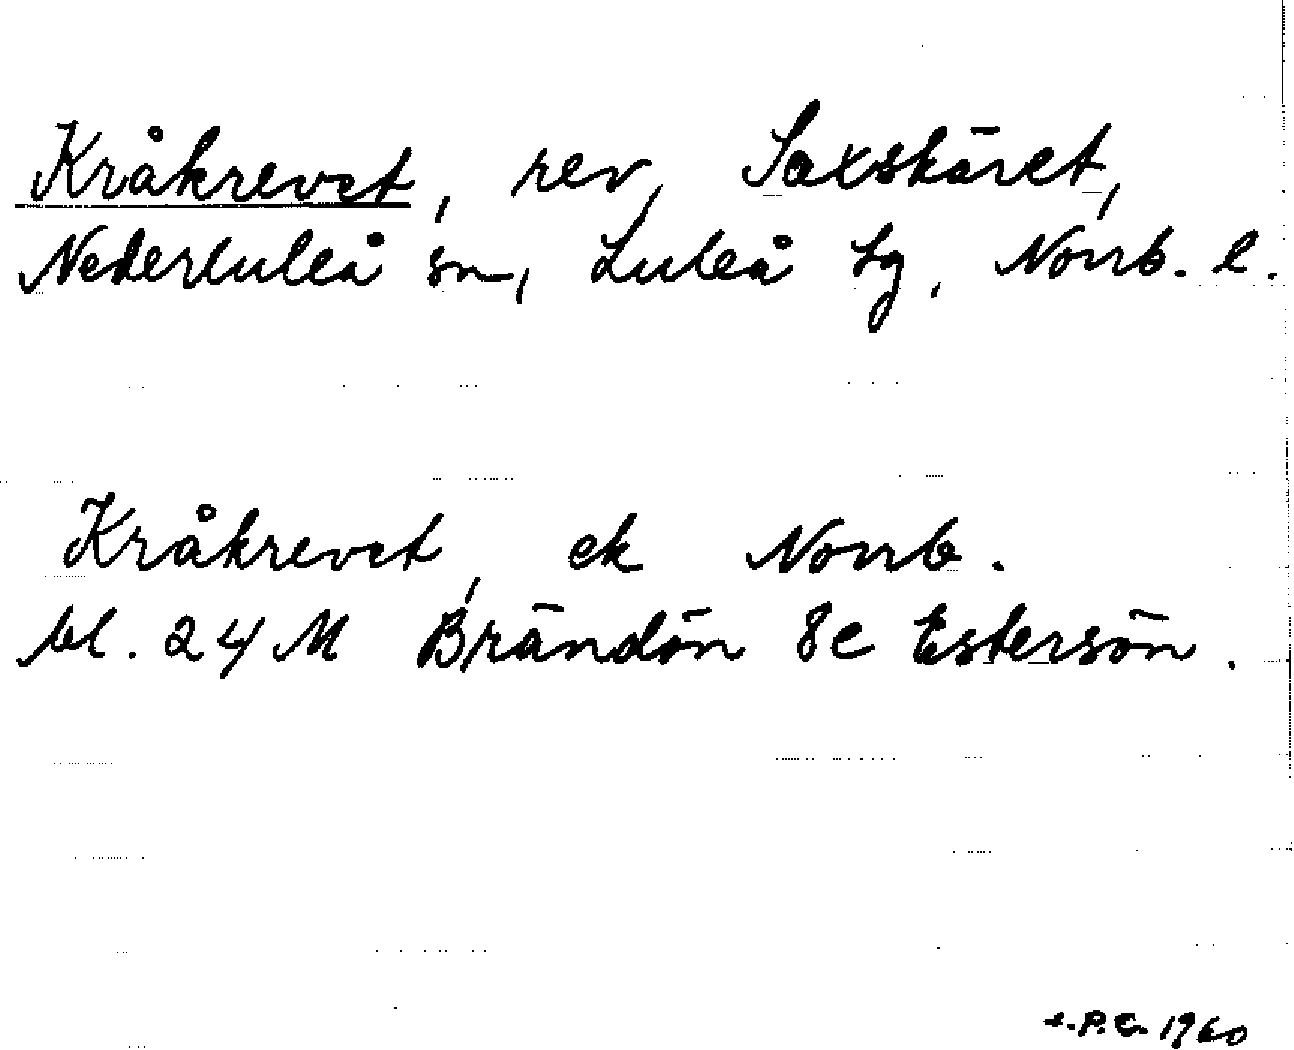 Kråkrevet, rev, Saxskäret,
Nederluleå sn, Luleå tg, Norrb. l.
Kråkrevet, ek Norrb.
bl. 24 M Brändön 8c Estersön.
P.E. 1960